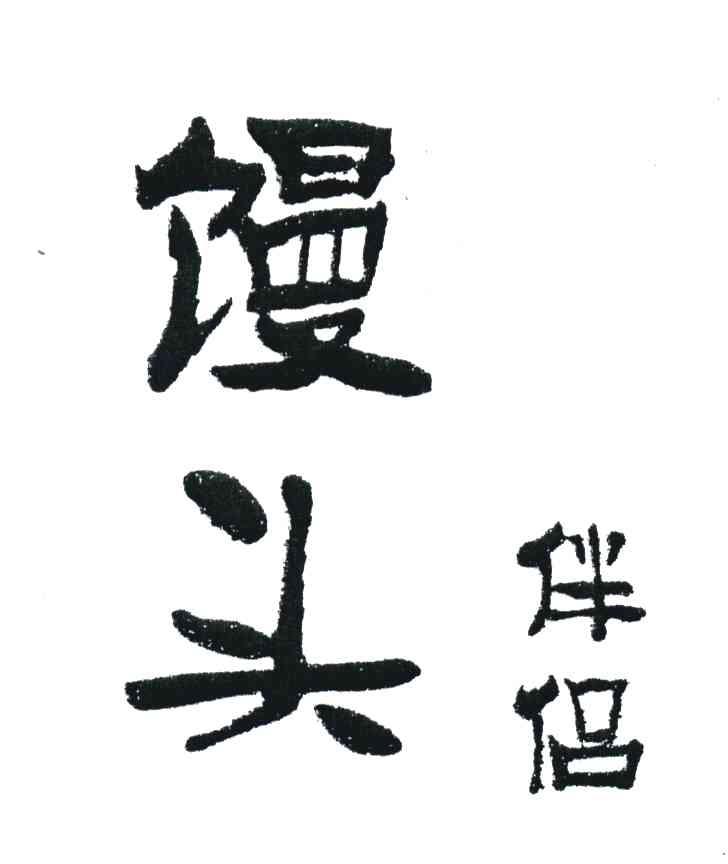 馒头
伴侣